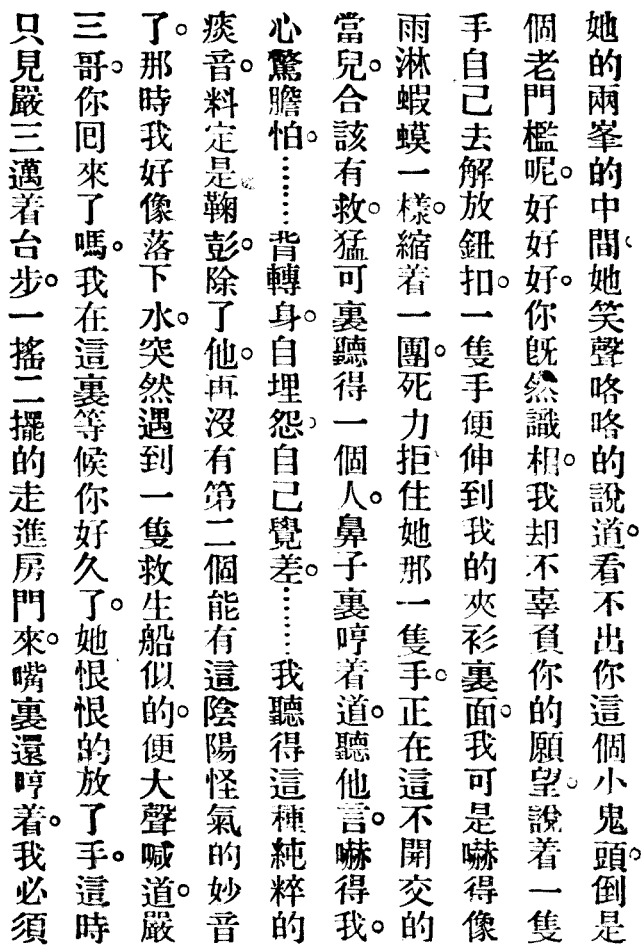 她的兩峯的中間。她笑聲咯咯的說道。看不出你這個小鬼頭。倒是
個老門檻呢。好好好。你既然識相。我却不辜負你的願望。說着一隻
手自己去解放鈕扣。一隻手便伸到我的夾衫裏面。我可是嚇得像
雨淋蝦蟆一樣。縮着一團。死力拒住她那一隻手。正在這不開交的
當兒。合該有救。猛可裏聽得一個人。鼻子裏哼着道。聽他言。嚇得我。
心驚膽怕。……背轉身。自埋怨。自己覺差。……我聽得這種純粹的
痰音。料定是鞠彭。除了他。再沒有第二個能有這陰陽怪氣的妙音
了。那時我好像落下水。突然遇到一隻救生船似的。便大聲喊道。嚴
三哥。你回來了嗎。我在這裏等候你好久了。她恨恨的放了手。這時
只見嚴三邁着台步。一搖二擺的走進房門來。嘴裏還哼着。我必須